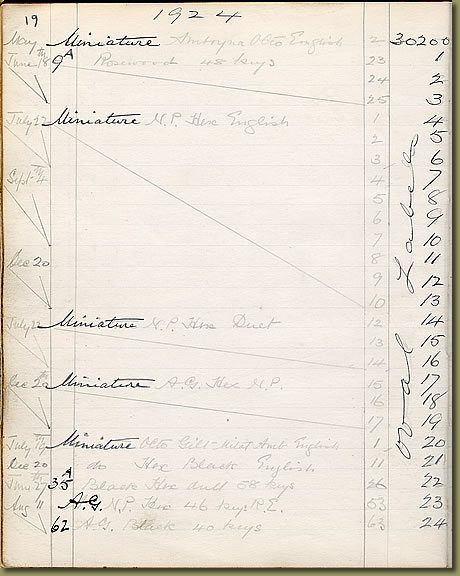 19
1924
May Miniature Amboyna Octo English 2 30200
June 18th 9A Rosewood 48 keys 23 1
24 2
25 3
July 22 Miniature N.P. Hex English 1 4
2 5
3 6
Sept 4th 4 7
5 8
6 9
7 10
Dec 20 8 11
9 12
10 13
July 22 Miniature N.P. Hex Duet 12 14
13 15
14 16
Dec 20 Miniature A.G. Hex N.P. 15 17
16 18
17 19
July Miniature Octo Gilt Amb English 1 20
Dec 20 do Hex Black English 11 21
June 27th 35A Black Hex dull 58 keys 26 22
Aug 11 A.G. N.P. Hex 46 keys R.E. 53 23
62 A.G. Black 40 keys 63 24
Oval Labels